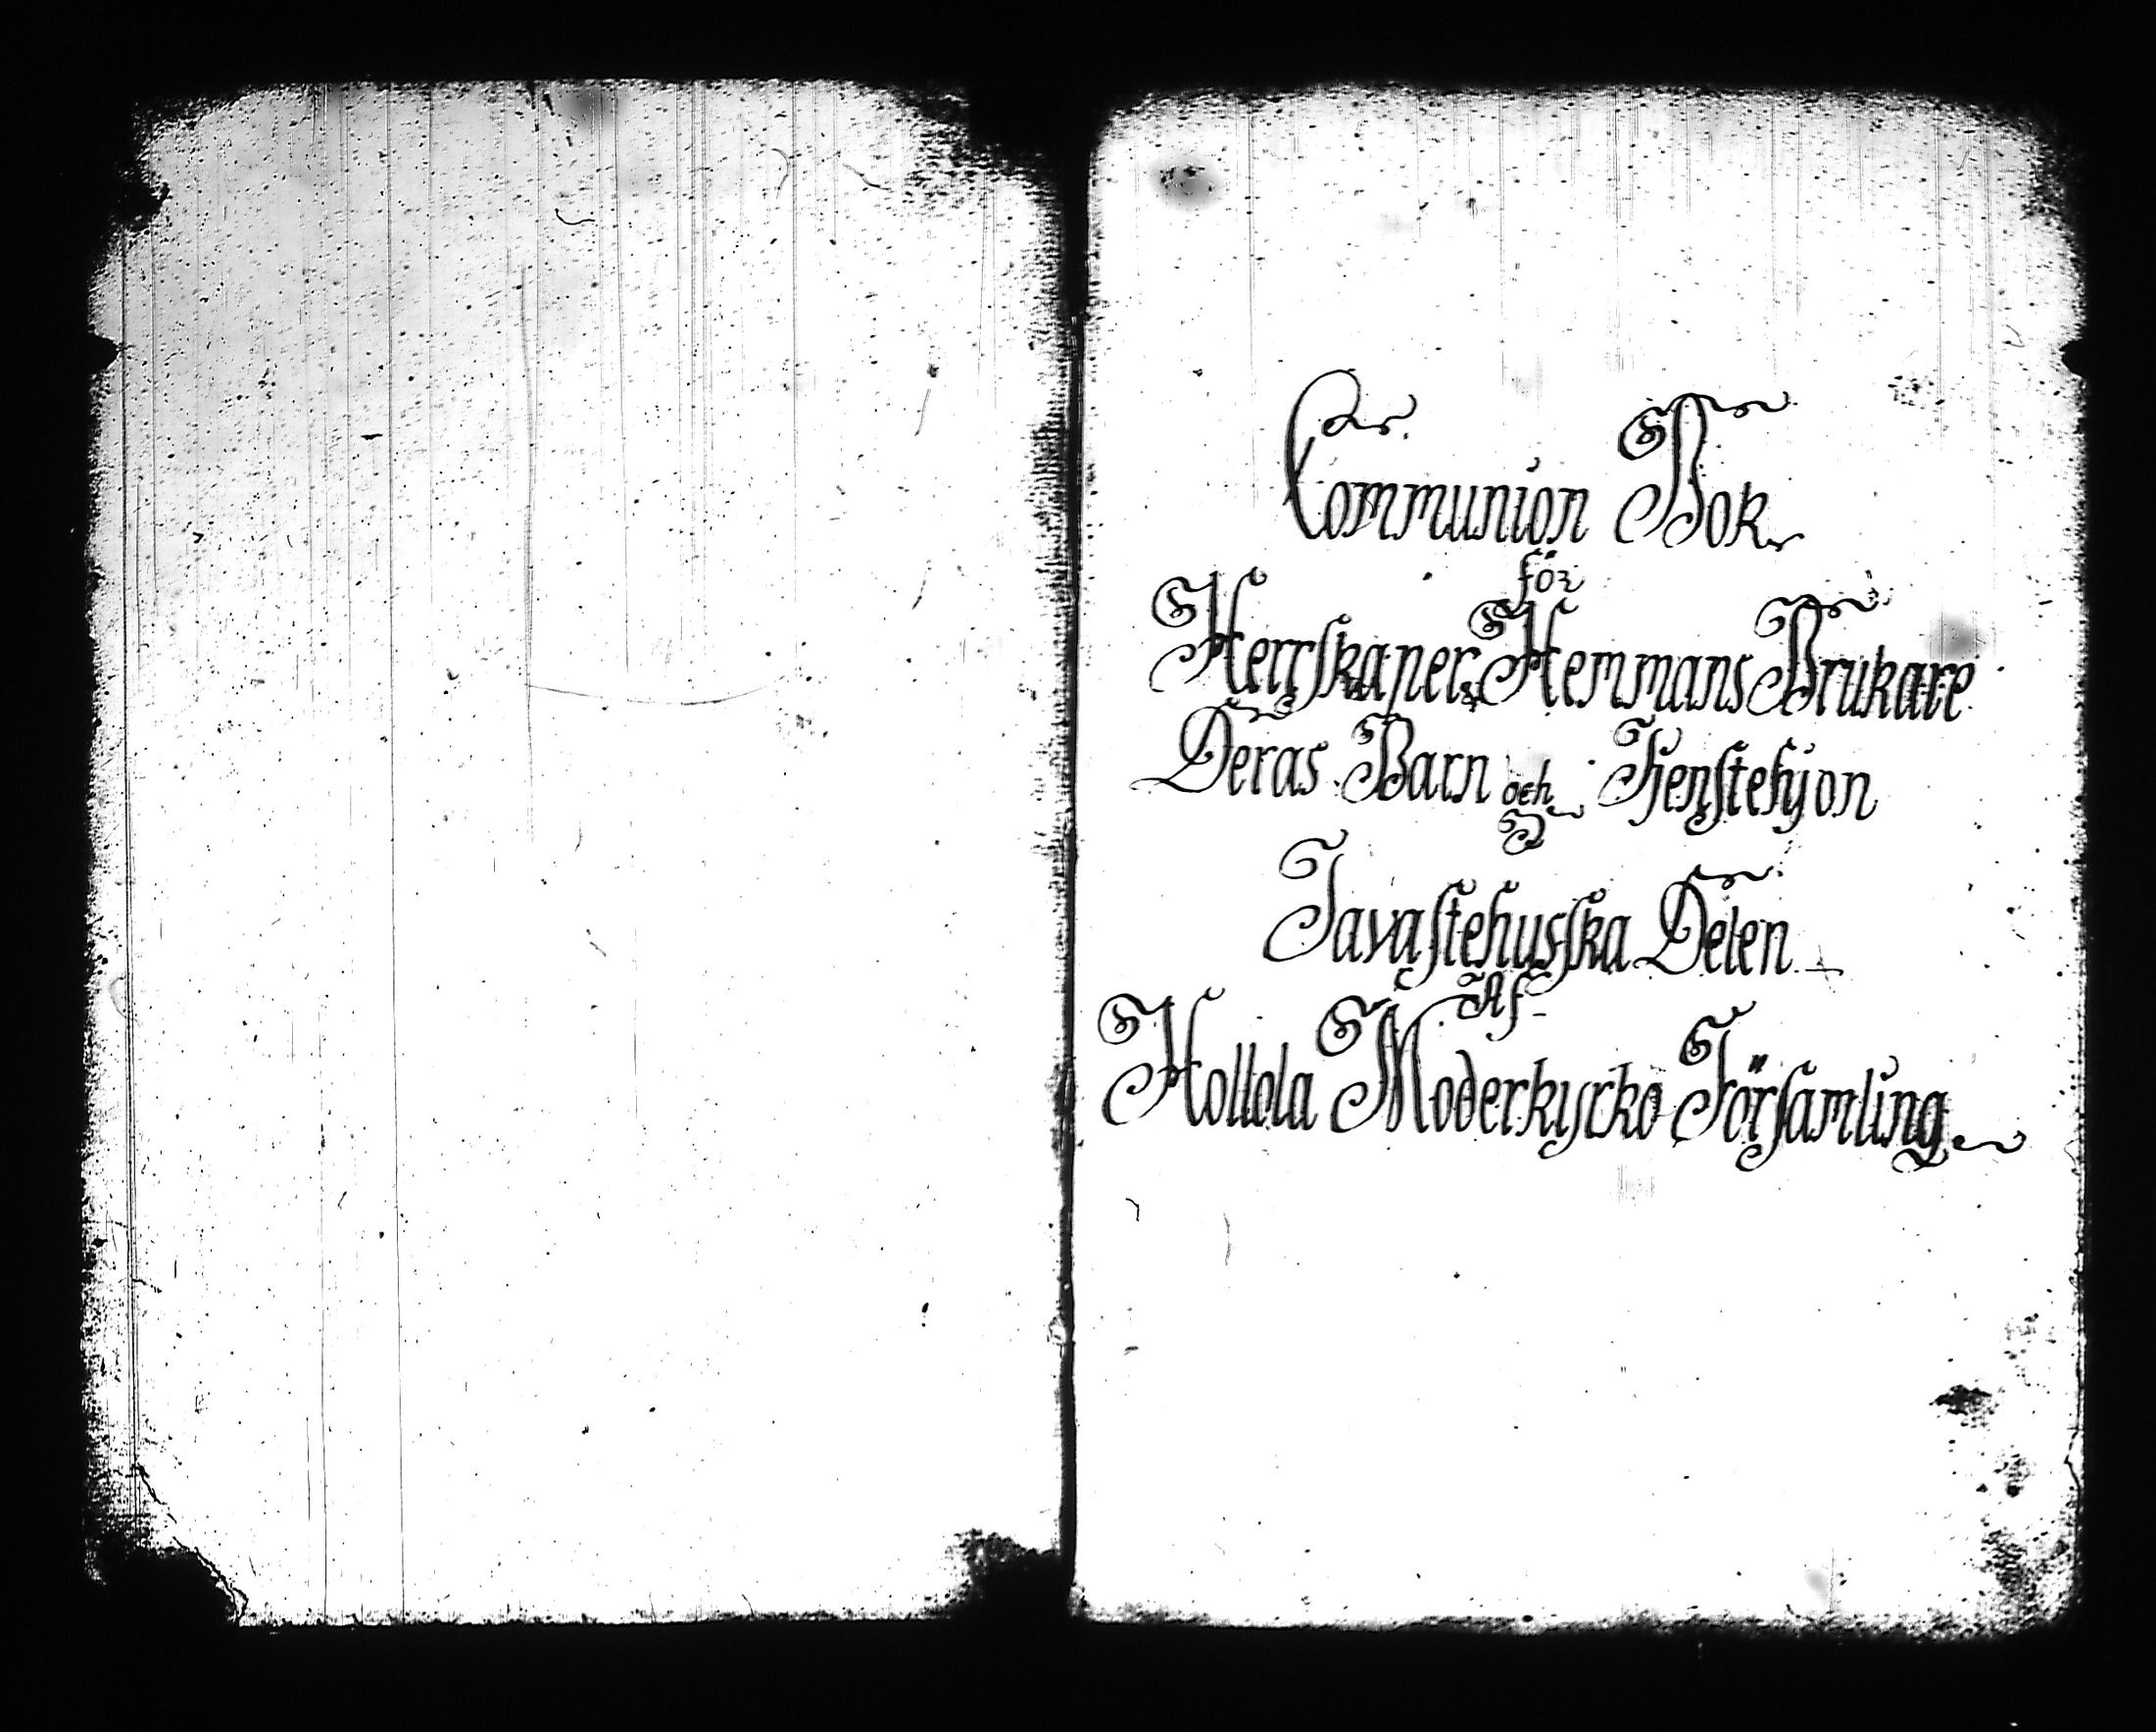 Communion Bok
för
Herrskaper Hemmans Brukare
Deras Barn och Tjenstehjon
i
Tavastehusska Delen
Af
Hollola Moderkyrko Församling